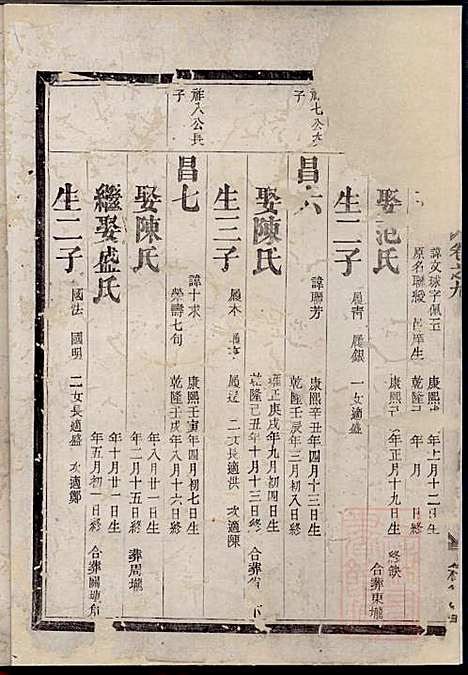 卷之九
諱文球字佩玉 康熙 年七月十二日生
原名聯授 庠生 乾隆 年 月 日終
娶范氏 康熙 年正月十九日生 終缺 合葬東壠
生二子 鳳霄 鳳銀 一女適盛
七公次子
昌六 諱聯芳 康熙辛丑年四月十三日生
乾隆壬辰年三月初八日終
娶陳氏 雍正庚戌年九月初四日生
乾隆己丑年十月十三日終 合葬
生三子 鳳木 鳳 鳳 二女長適洪 次適陳
祚入公長子
昌七 諱十求 康熙壬寅年四月初七日生
榮壽七旬 乾隆壬戌年八月十六日終
娶陳氏 年八月廿一日生
年二月十五日終 葬周壠
繼娶盛氏 年十月廿一日生
年五月初一日終 合葬關塘角
生二子 國法 國明 二女長適盛 次適鄭